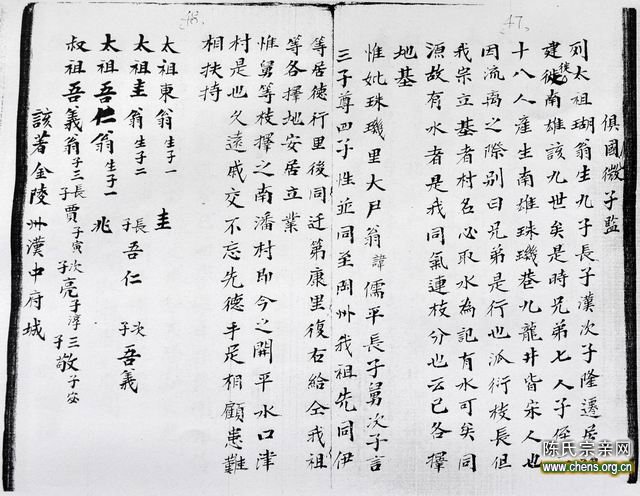 47.
俱國微子監
列太祖瑚翁生九子長子漢次子隆遷居福
建後徙南雄該九世矣是時兄弟七人子侄
十八人產生南雄珠璣巷九龍井皆宋人也
因流离之際別曰兄弟是行也派衍枝長但
我崇立基者村名必取水為記有水可矣同
源故有水者是我同氣連枝分也云已各擇
地基
惟妣珠璣里大尸翁諱儒平長子舅次子言
三子尊四子性並同至岡州我祖先同伊
48.
等居德行里後同迁第康里復右給仝我祖
等各擇地安居立業
惟舅等枝擇之南潘村即今之開平水口津
村是也久遠戚交不忘先德手足相顧患難
相扶持
太祖東翁生子一 圭
太祖圭翁生子二 長子吾仁 次子吾義
太祖吾仁翁生子一 兆
叔祖吾義翁子三長子賈子寅次子亮子淳三子敬子安
該著金陵州漢中府城
陈氏宗亲网
www.chens.org.cn